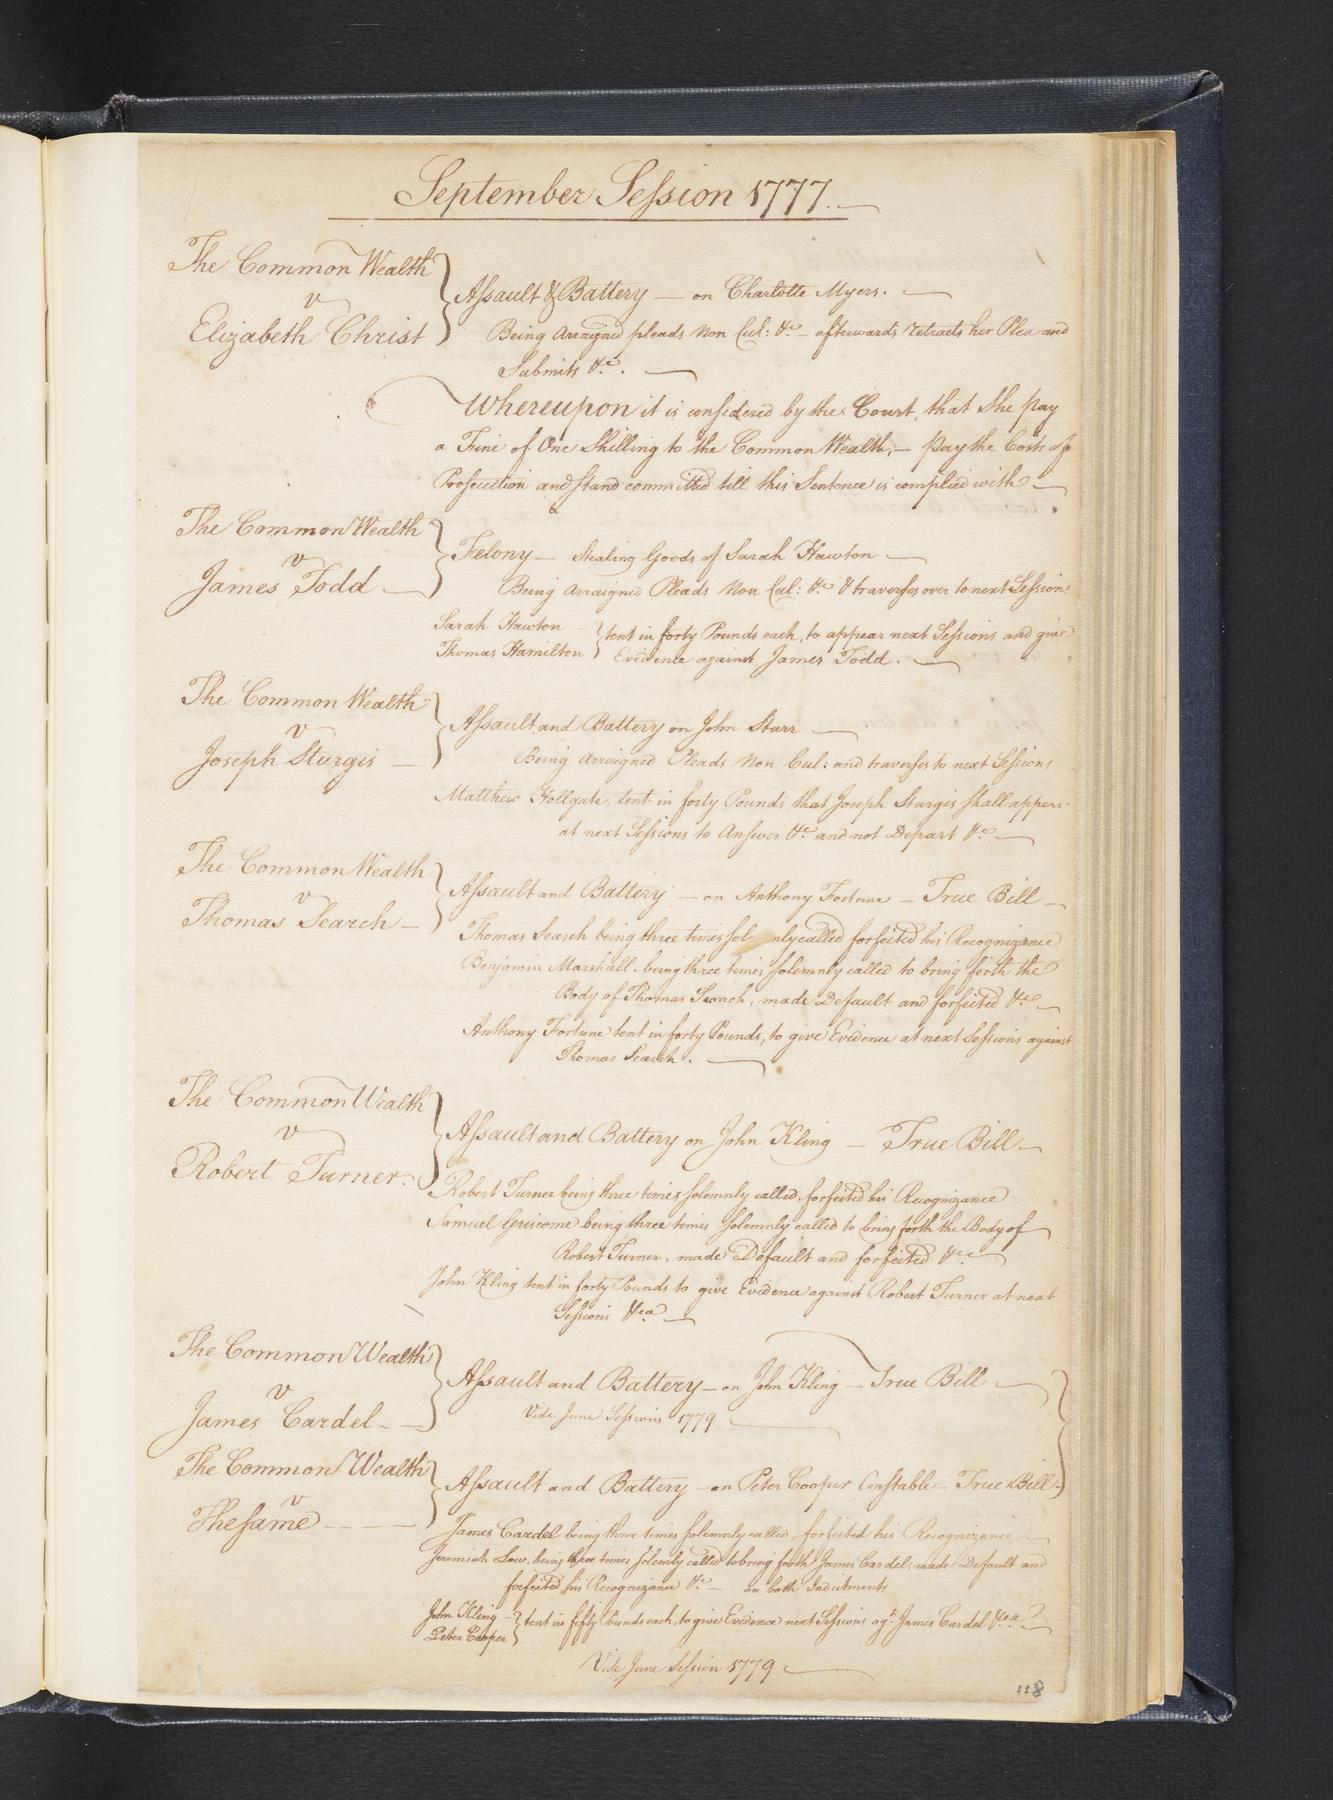 September Session 1777.
The Common Wealth
v
Elizabeth Christ
Assault & Battery — on Charlotte Myers.
Being arraigned pleads Non Cul: &c — afterwards retracts her Plea and
Submits &c.
Whereupon it is considered by the Court, that She pay
a Fine of One Shilling to the Common Wealth; — pay the Costs of
Prosecution and stand committed till this Sentence is complied with —
The Common Wealth
v
James Todd
Felony — Stealing Goods of Sarah Hawton —
Being arraigned Pleads Non Cul: &c & traverses over to next Sessions
Sarah Hawton
Thomas Hamilton
tent in forty Pounds each, to appear next Sessions and give
Evidence against James Todd.
The Common Wealth
v
Joseph Sturgis
Assault and Battery on John Starr
Being arraigned Pleads Non Cul: and traverses to next Sessions
Matthew Hollgate, tent in forty Pounds that Joseph Sturgis shall appear
at next Sessions to Answer &c and not Depart &c
The Common Wealth
v
Thomas Search
Assault and Battery — on Anthony Fortune — True Bill
Thomas Search being three times sol nly called forfeited his Recognizance
Benjamin Marshall being three times solemnly called to bring forth the
Body of Thomas Search, made Default and forfeited &c
Anthony Fortune tent in forty Pounds, to give Evidence at next Sessions against
Thomas Search.
The Common Wealth
v
Robert Turner
Assault and Battery on John Kling — True Bill
Robert Turner being three times solemnly called, forfeited his Recognizance
Samuel Griscome being three times solemnly called to bring forth the Body of
Robert Turner, made Default and forfeited &c
John Kling tent in forty Pounds to give Evidence against Robert Turner at next
Sessions &ca
The Common Wealth
v
James Cardel
Assault and Battery — on John Kling — True Bill
Vide June Sessions 1779
The Common Wealth
v
The same
Assault and Battery — on Peter Cooper Constable — True Bill
James Cardel being three times solemnly called, forfeited his Recognizance
Jeremiah Low, being three times solemnly called to bring forth James Cardel, made Default and
forfeited his Recognizance &c — on both Indictments
John Kling
Peter Cooper
tent in fifty Pounds each, to give Evidence next Sessions agt. James Cardel &ca
Vide June Session 1779
118